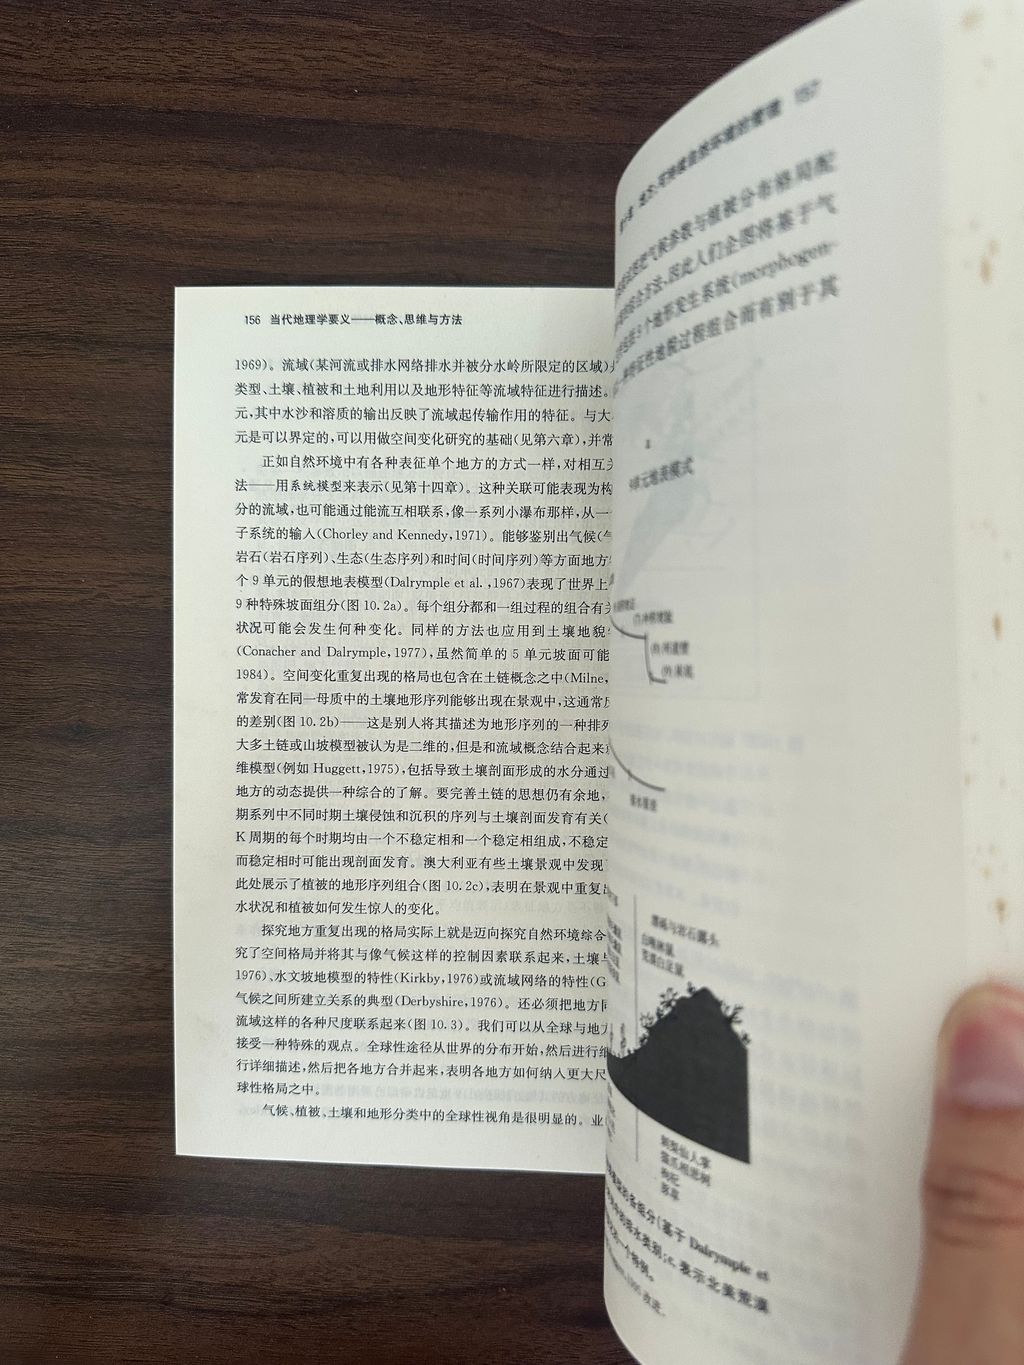 156 当代地理学要义——概念、思维与方法
1969)。流域(某河流或排水网络排水并被分水岭所限定的区域)
类型、土壤、植被和土地利用以及地形特征等流域特征进行描述。
元,其中水沙和溶质的输出反映了流域起传输作用的特征。与大
元是可以界定的,可以用做空间变化研究的基础(见第六章),并常
正如自然环境中有各种表征单个地方的方式一样,对相互关
法——用系统模型来表示(见第十四章)。这种关联可能表现为构
分的流域,也可能通过能流互相联系,像一系列小瀑布那样,从一
子系统的输入(Chorley and Kennedy,1971)。能够鉴别出气候(气
岩石(岩石序列)、生态(生态序列)和时间(时间序列)等方面地方
个 9 单元的假想地表模型(Dalrymple et al. ,1967)表现了世界上
9 种特殊坡面组分(图 10.2a)。每个组分都和一组过程的组合有关
状况可能会发生何种变化。同样的方法也应用到土壤地貌
(Conacher and Dalrymple,1977),虽然简单的 5 单元坡面可能
1984)。空间变化重复出现的格局也包含在土链概念之中(Milne,
常发育在同一母质中的土壤地形序列能够出现在景观中,这通常反
的差别(图 10.2b)——这是别人将其描述为地形序列的一种排列
大多土链或山坡模型被认为是二维的,但是和流域概念结合起来
维模型(例如 Huggett,1975),包括导致土壤剖面形成的水分通过
地方的动态提供一种综合的了解。要完善土链的思想仍有余地,
期系列中不同时期土壤侵蚀和沉积的序列与土壤剖面发育有关(
K 周期的每个时期均由一个不稳定相和一个稳定相组成,不稳定
而稳定相时可能出现剖面发育。澳大利亚有些土壤景观中发现
此处展示了植被的地形序列组合(图 10.2c),表明在景观中重复出
水状况和植被如何发生惊人的变化。
探究地方重复出现的格局实际上就是迈向探究自然环境综合
究了空间格局并将其与像气候这样的控制因素联系起来,土壤与
1976)、水文坡地模型的特性(Kirkby,1976)或流域网络的特性(G
气候之间所建立关系的典型(Derbyshire,1976)。还必须把地方同
流域这样的各种尺度联系起来(图 10.3)。我们可以从全球与地方
接受一种特殊的观点。全球性途径从世界的分布开始,然后进行细
行详细描述,然后把各地方合并起来,表明各地方如何纳入更大尺
球性格局之中。
气候、植被、土壤和地形分类中的全球性视角是很明显的。业
157
气候参数与植被分布格局配
综合方法,因此人们企图将基于气
3 个地形发生系统(morphogen-
特征性地貌过程组合而有别于其
单元地表模式
砾与岩石露头
的各组分(基于 Dalrymple et
的排水类别;c. 表示北美荒漠
一个特例。